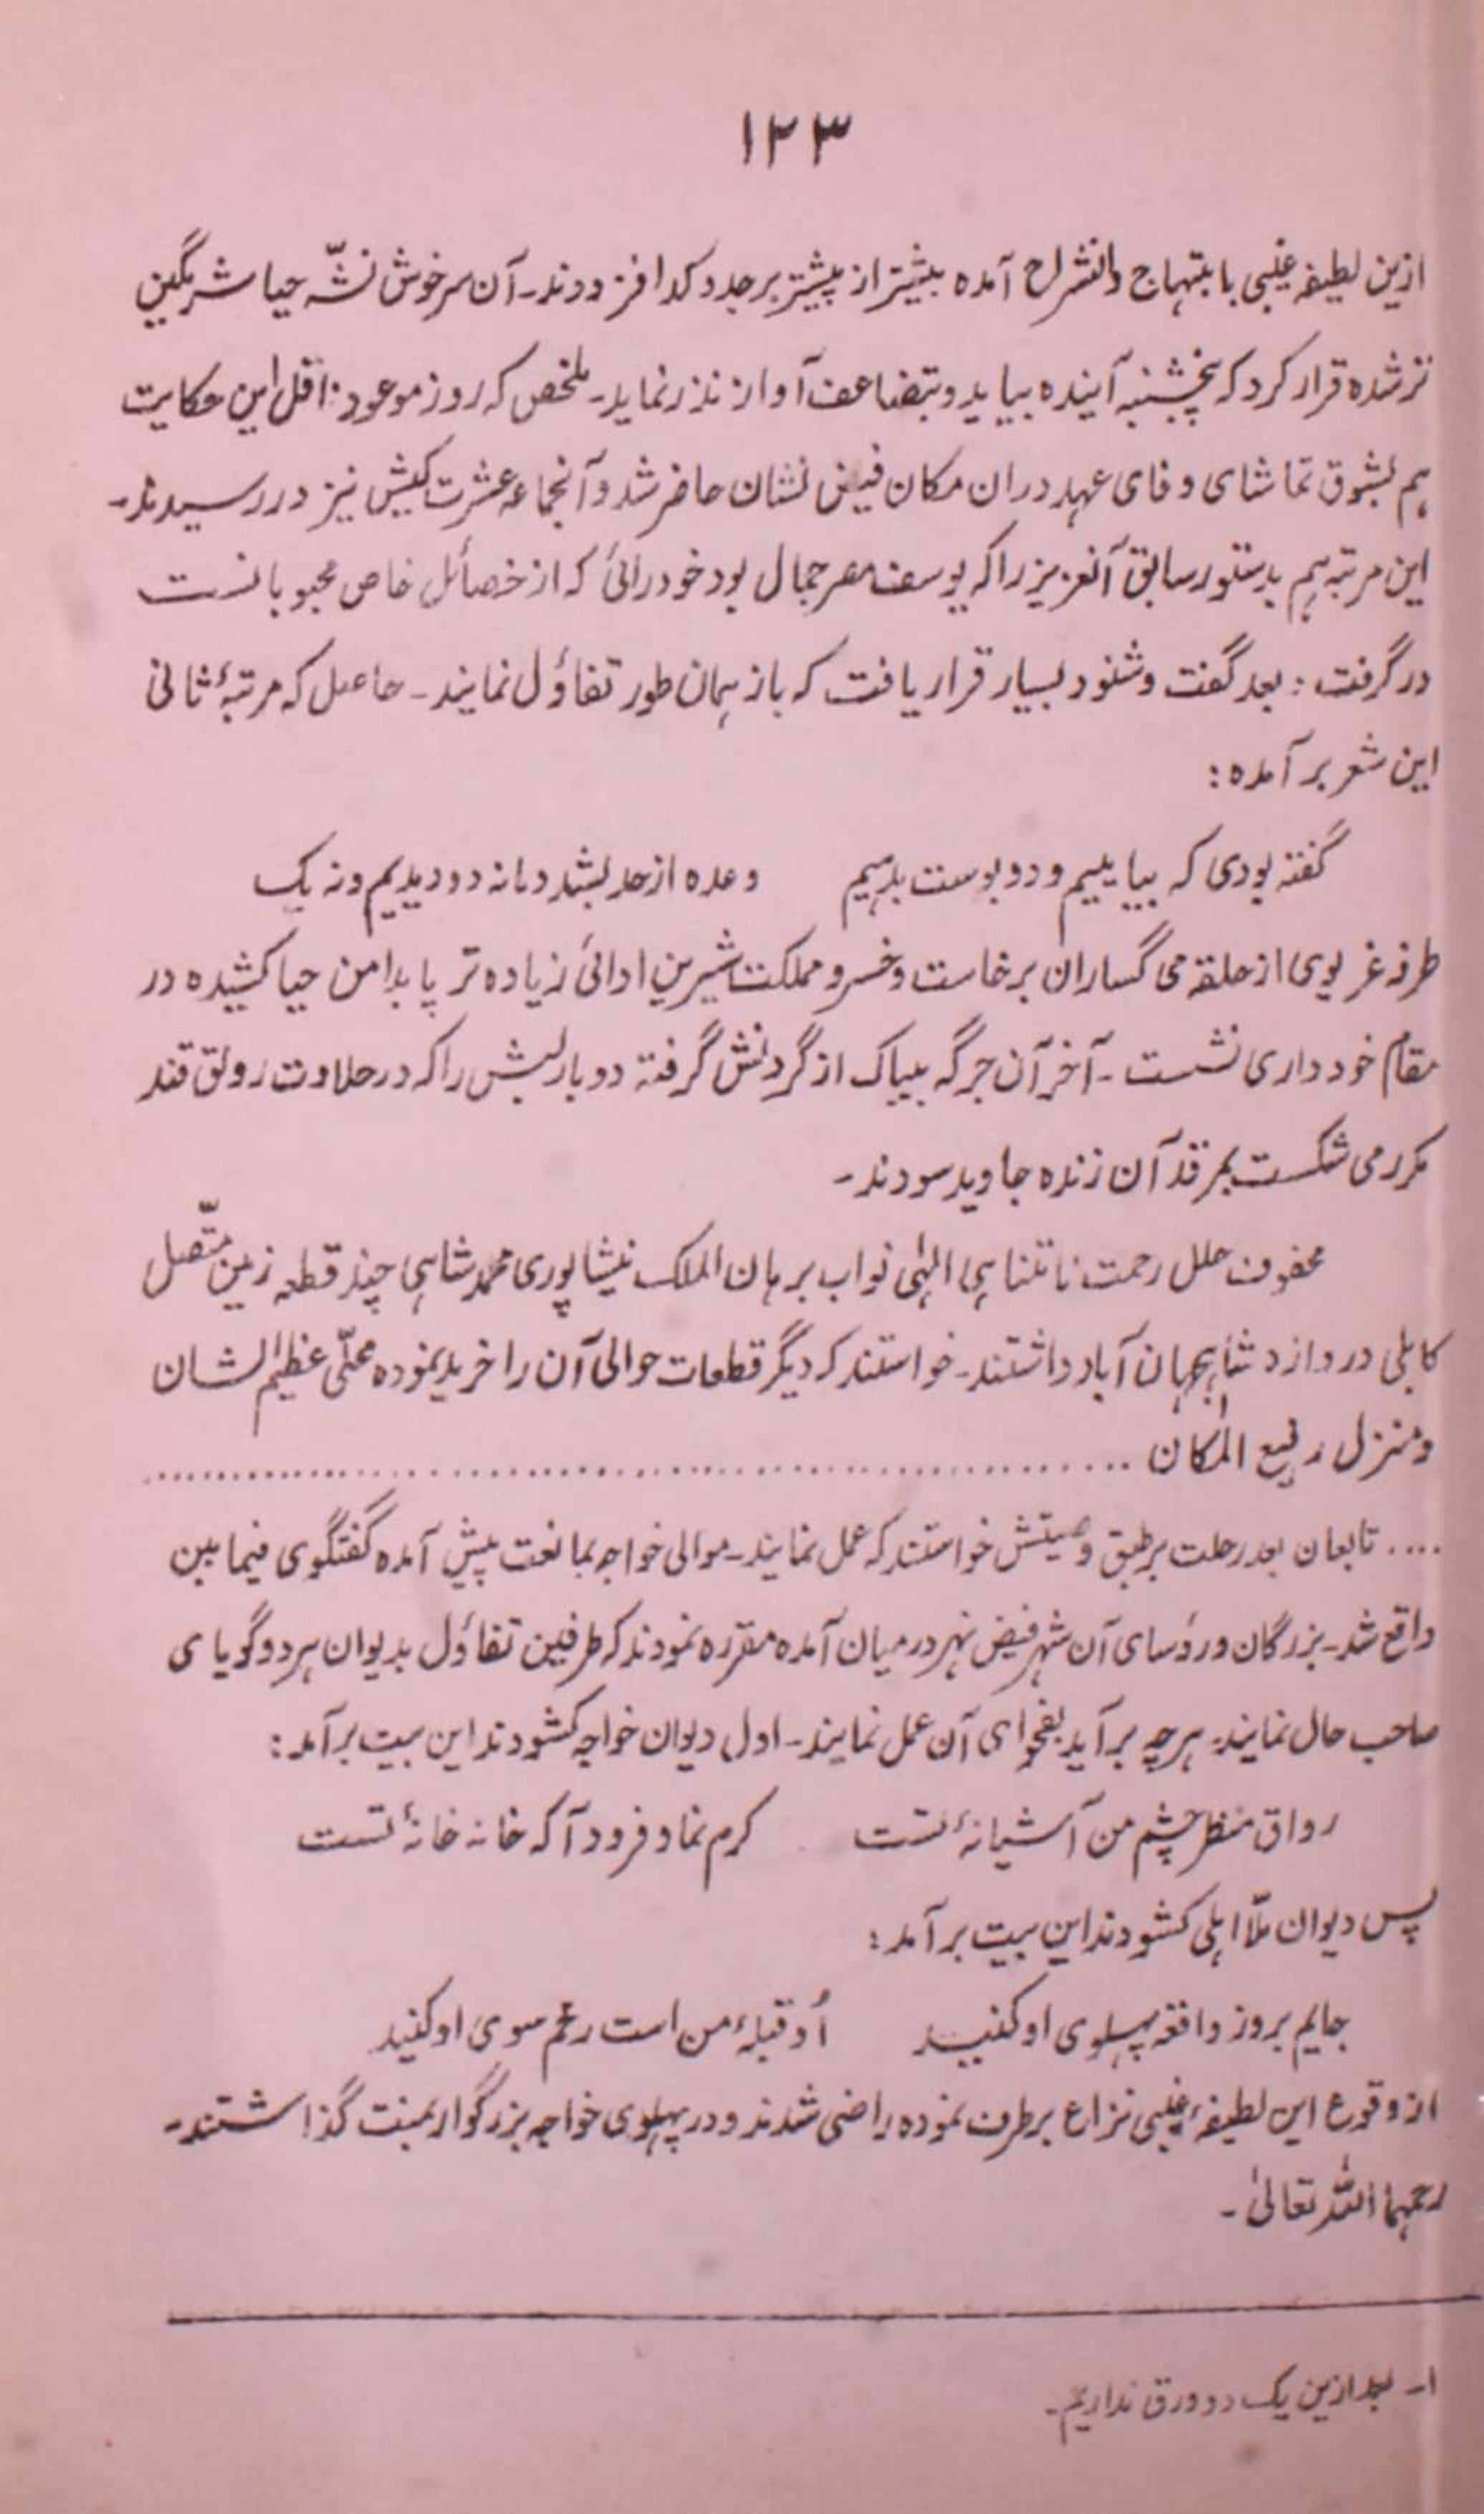 ۱۲۳
ازین لطیفه غیبی بابتهاج وانشراح آمده بیشتر از پیشتر بر جد و کد افزودند۔ آن سرخوش نشّه حیا شرمگین
تر شده قرار کرد که پنجشنبه آینده بیاید و بتضاعف آواز نذر نماید۔ ملخص که روز موعود ناقل این حکایت
هم بشوق تماشای وفای عهد دران مکان فیض نشان حاضر شد و آنجماعه عشرت کیش نیز در رسیدند۔
این مرتبه هم بدستور سابق آنعزیز را که یوسف مصر جمال بود خودرائی که از خصائل خاص محبوبانست
در گرفت : بعد گفت و شنود بسیار قرار یافت که باز همان طور تفاؤل نمایند۔ حاصل که مرتبۂ ثانی
این شعر بر آمده :
گفته بودی که بیاییم و دو بوست بدهیم     وعده از حد بشد و ما نه دو دیدیم و نه یک
طرفه غریوی از حلقه می گساران برخاست و خسرو مملکت شیرین ادائی زیاده تر پا بدامن حیا کشیده در
مقام خود داری نشست۔ آخر آن جرگه بیباک از گردنش گرفته دو بار لبش را که در حلاوت رونق قند
مکرر می شکست بمرقد آن زنده جاوید سودند۔
محفوف حلل رحمت نامتناهی الہٰی نواب برهان الملک نیشاپوری محمد شاہی چند قطعه زمین متّصل
کابلی دروازه شاہجہان آباد داشتند۔ خواستند که دیگر قطعات حوالی آن را خرید نموده محلّی عظیم الشان
و منزل رفیع المکان ..........
.... تابعان بعد رحلت بر طبق وصیتش خواستند که عمل نمایند۔ موالی خواجه بمانعت پیش آمده گفتگوی فیما بین
واقع شد۔ بزرگان و رؤسای آن شهر فیض بهر درمیان آمده مقرّره نمودند که طرفین تفاؤل بدیوان هر دو گویای
صاحب حال نمایند۔ هر چه بر آید بفحوای آن عمل نمایند۔ اول دیوان خواجه کشودند این بیت بر آمد :
رواق منظر چشم من آشیانۂ تست     کرم نما و فرود آ که خانه خانۂ تست
پس دیوان ملّا اہلی کشودند این بیت بر آمد :
جایم بروز واقعه پهلوی او کنید     اُو قبلۂ من است رخم سوی او کنید
از وقوع این لطیفۂ غیبی نزاع برطرف نموده راضی شدند و در پهلوی خواجه بزرگوار بمنت گذاشتند۔
رحمهما اللہ تعالیٰ ۔
۱۔ بعد ازین یک دو ورق نداریم۔